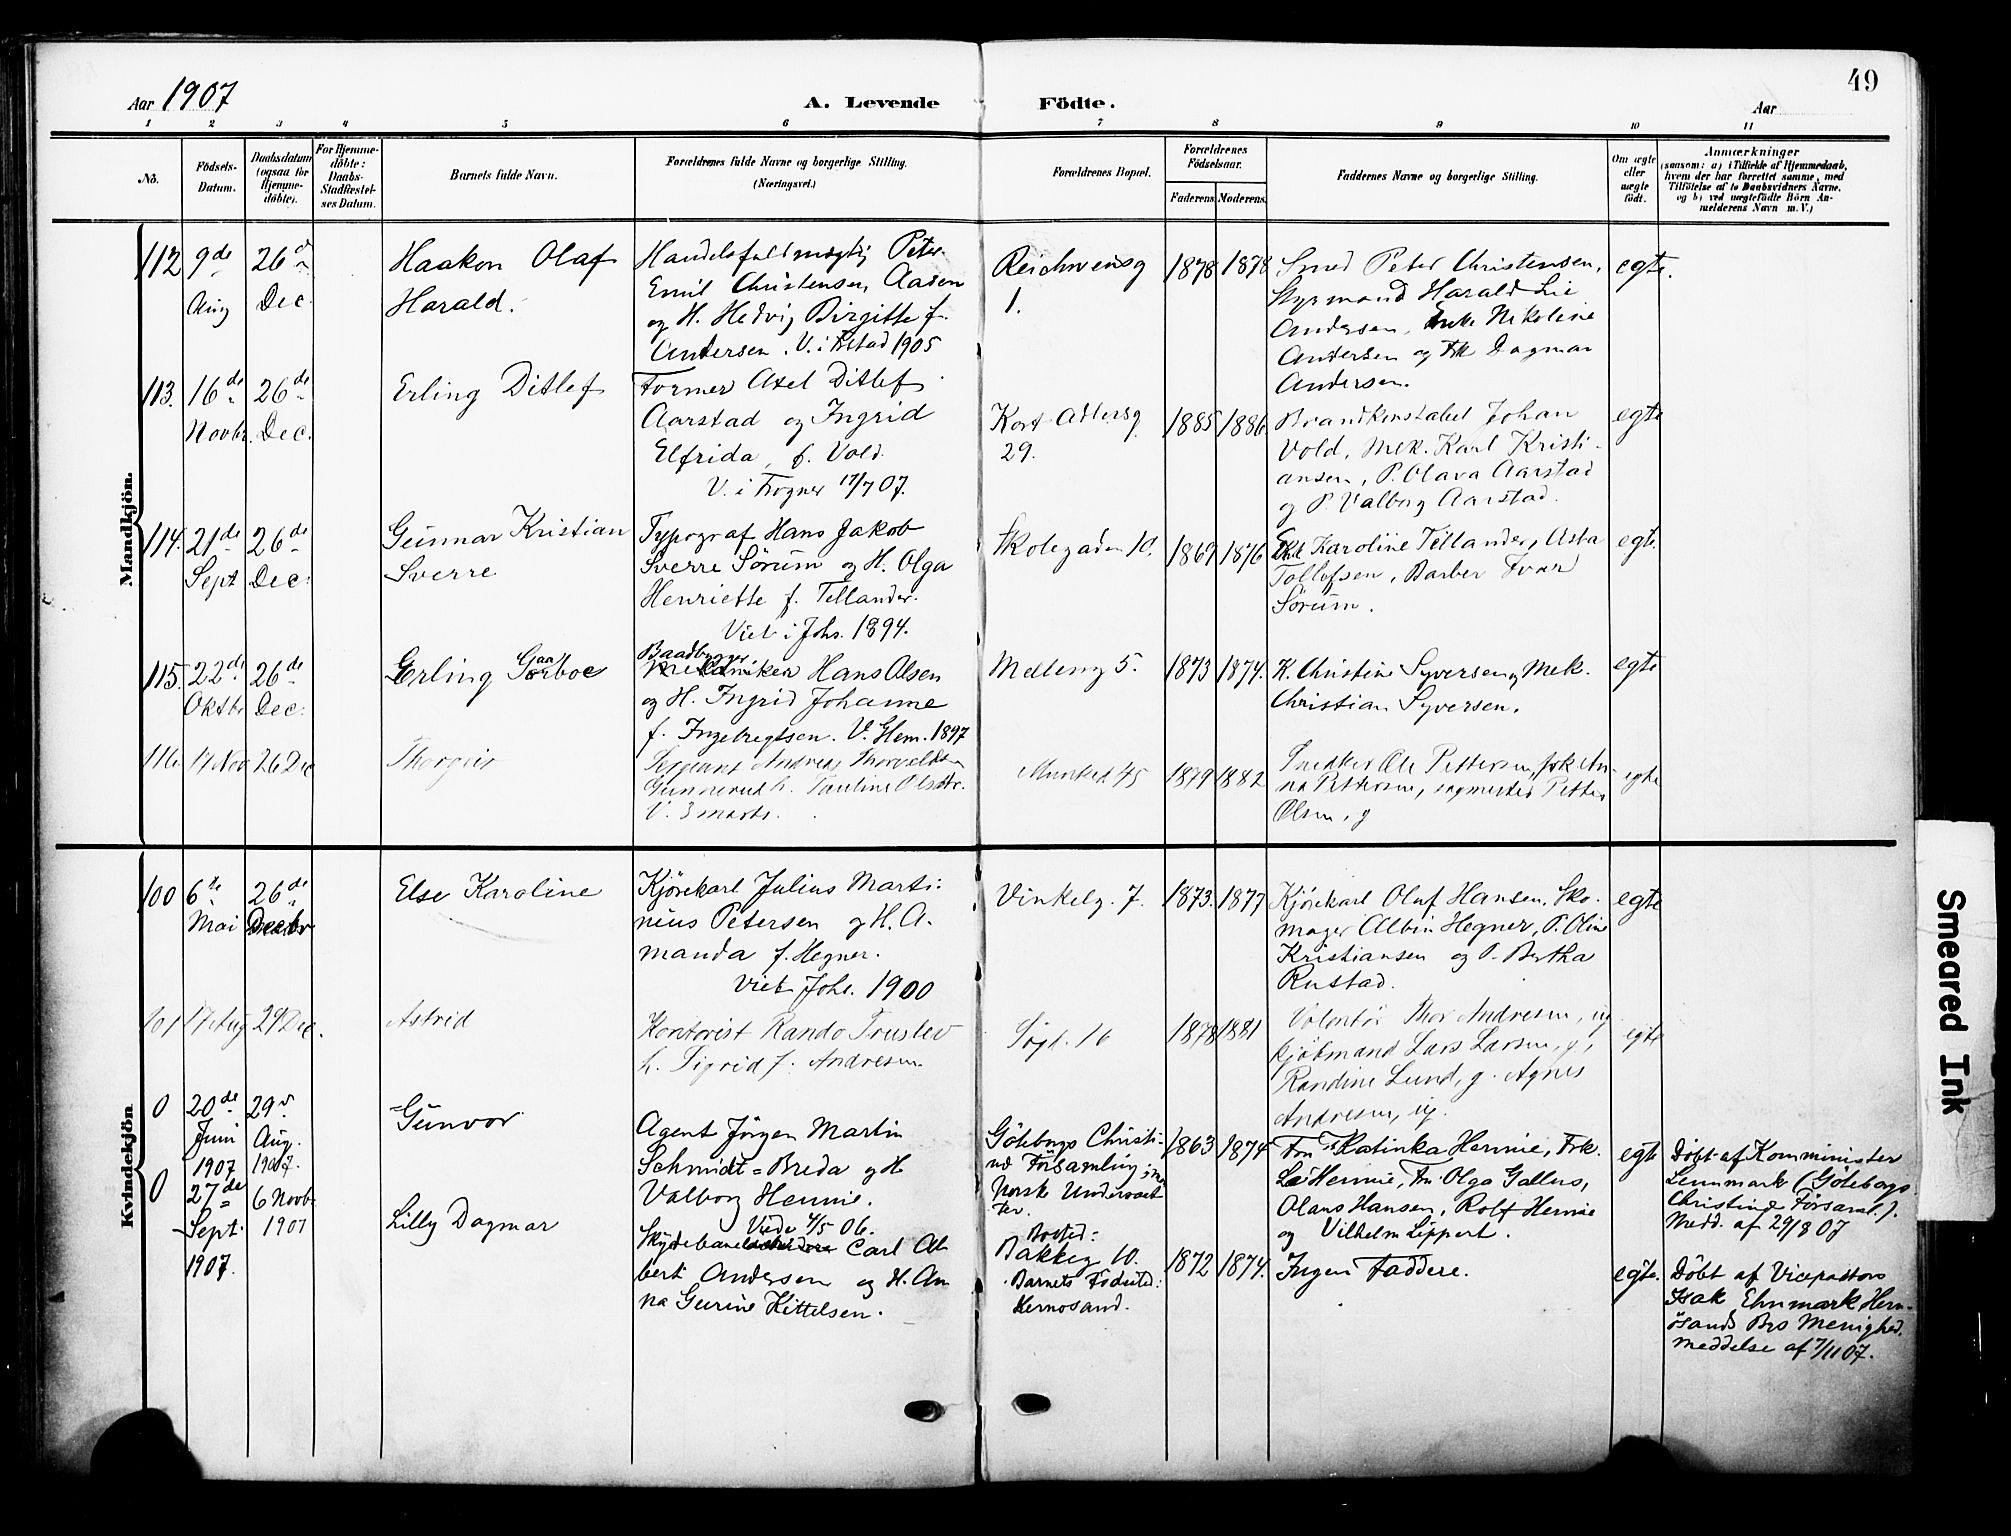 49
Aar 1907
A. Levende
Födte.
Aar
1 2 3 4 5 6 7 8 9 10 11
No.
Födsels-
Datum.
Daabsdatum
(ogsaa for
Hjemme-
döbte).
For Hjemme-
döbte:
Daabs-
Stadfæstel-
ses Datum.
Barnets fulde Navn.
Forældrenes fulde Navne og borgerlige Stilling.
(Næringsvei.)
Forældrenes Bopæl.
Forældrenes
Födselsaar.
Faderens.
Moderens.
Faddernes Navne og borgerlige Stilling.
Om ægte
eller
uægte
födt.
Anmærkninger
(saasom: a) i Tilfælde af Hjemmedaab,
hvem der har forrettet samme, med
Tilföielse af to Daabsvidners Navne,
og b) ved uægtefödte Börn An-
melderens Navn m. V.)
Mandkjön.
112
9de
Aug
26d
Dec.
Haakon Olaf
Harald.
Handelsfuldmægtig Peter
Emil Christensen Aasen
og H. Hedvig Birgitte f.
Andersen. V. i Fr.stad 1905
Reichweinsg
1.
1878
1878
Smed Peter Christensen,
Styrmand Harald Lie
Andersen, Enke Nikoline
Andersen og Frk Dagmar
Andersen.
egte.
113.
16de
Novbr.
26de
Dec.
Erling Ditlef
Former Axel Ditlef
Aarstad og Ingrid
Elfrida f. Vold.
V. i Frogner 17/7 07.
Kort Adlersg
29.
1885
1886
Brandkonstabel Johan
Vold, Mek. Karl Kristi-
ansen, P. Olava Aarstad
og P. Valborg Aarstad.
egte
114.
21de
Sept
26de
Dec.
Gunnar Kristian
Sverre
Typograf Hans Jakob
Sverre Sörum og H. Olga
Henriette f. Tellander.
Viet i Johs. 1894.
Skolegaden 10.
1867
1876
Karoline Tellander, Asta
Tollofsen, Barber Ivar
Sörum.
egte.
115.
22de
Oktbr
26de
Dec.
Erling Gaarboe
Baadbygger
Hans Olsen
og H. Ingrid Johanne
f. Ingebregtsen. V. Glem. 1897
Melleng 5.
1873
1874.
K. Christine Syversen og Mek.
Christian Syversen.
egte
116.
17 Nov
26 Dec
Thorgeir
Sergeant Andreas Thorvaldsen
Gunnerud h. Pauline Olsdtr.
V. 3 marts.
Munked. 45
1879
1882
Snedker Ole Pettersen, frk An-
na Pettersen, sagmester Petter
Olsen, g
egte
Kvindekjön
100
6te
Mai
26de
Decbr
Else Karoline
Kjörekarl Julius Marti-
nius Petersen og H. A-
manda f. Hegner.
Viet Johs. 1900
Vinkelg. 7.
1873.
1877
Kjörekarl Oluf Hansen, Sko-
mager Albin Hegner, P. Oline
Kristiansen og P. Bertha
Rustad.
egte
101
17 Aug
29 Dec.
Astrid
Kontorist Rando Truslev
h. Sigrid f. Andresen
16
1878
1881
Volontör Thor Andresen, ug
kjöbmand Lars Larsen, g,
Randine Lund, g. Agnes
Andresen, ug.
egte
0
20de
Juni
1907
29d
Aug.
1907.
Gunvor
Agent Jörgen Martin
Schmidt=Breda og H
Valborg Hennie.
Viede 4/5 06.
Göteborgs Christi-
ne Församling
Norske Undersaat-
ter.
1863
1874
Fru Katinka Hennie, Frk.
Hennie, Fru Olga Gallus,
Olaus Hansen, Rolf Hennie
og Vilhelm Lippert.
egte
Döbt af Komminister
Lennmark (Göteborgs
Christine Församl.).
Medd. af 29/8 07
0
27de
Sept.
1907.
6 Novbr
1907
Lilly Dagmar
Carl Al-
bert Andersen og H. An-
na Gurine Kittelsen.
Bosted:
Bakkeg 10.
Barnets Födsted:
Hernösand.
1872
1874.
Ingen Faddere.
egte.
Döbt af Vicepastor
Isak Ehnmark Hern-
ösands Bys Menighed.
Meddelse af 7/11 07.
Smeared Ink